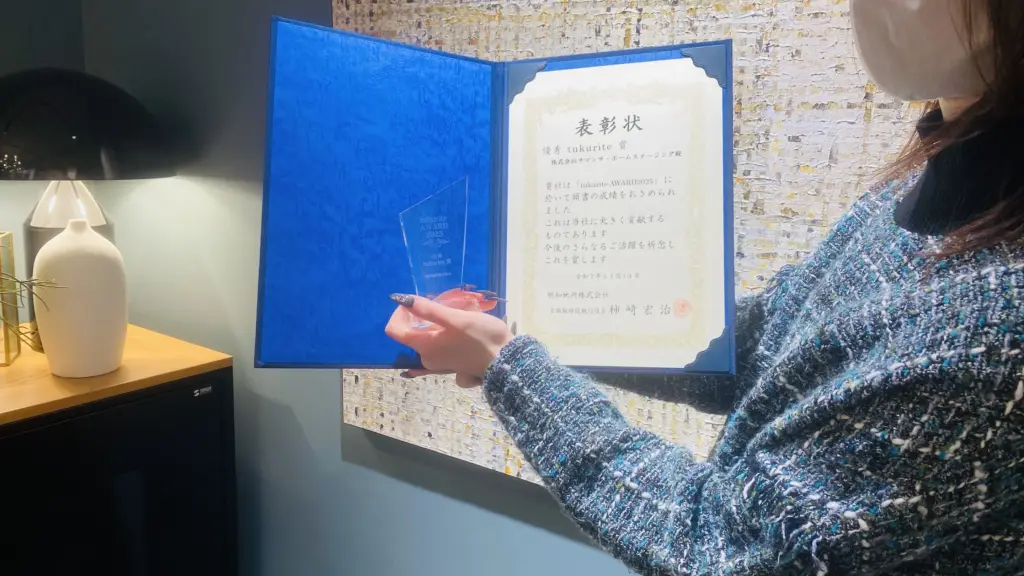 表彰状
優秀 tukurite 賞
株式会社サマンサ・ホームステージング殿
貴社は「tukurite AWARD2025」に
於いて頭書の成績をおさめられ
ました
これは弊社に大きく貢献する
ものであります
今後のさらなるご活躍を祈念し
これを賞します
明和地所株式会社
柿﨑宏治
AWARD
2025